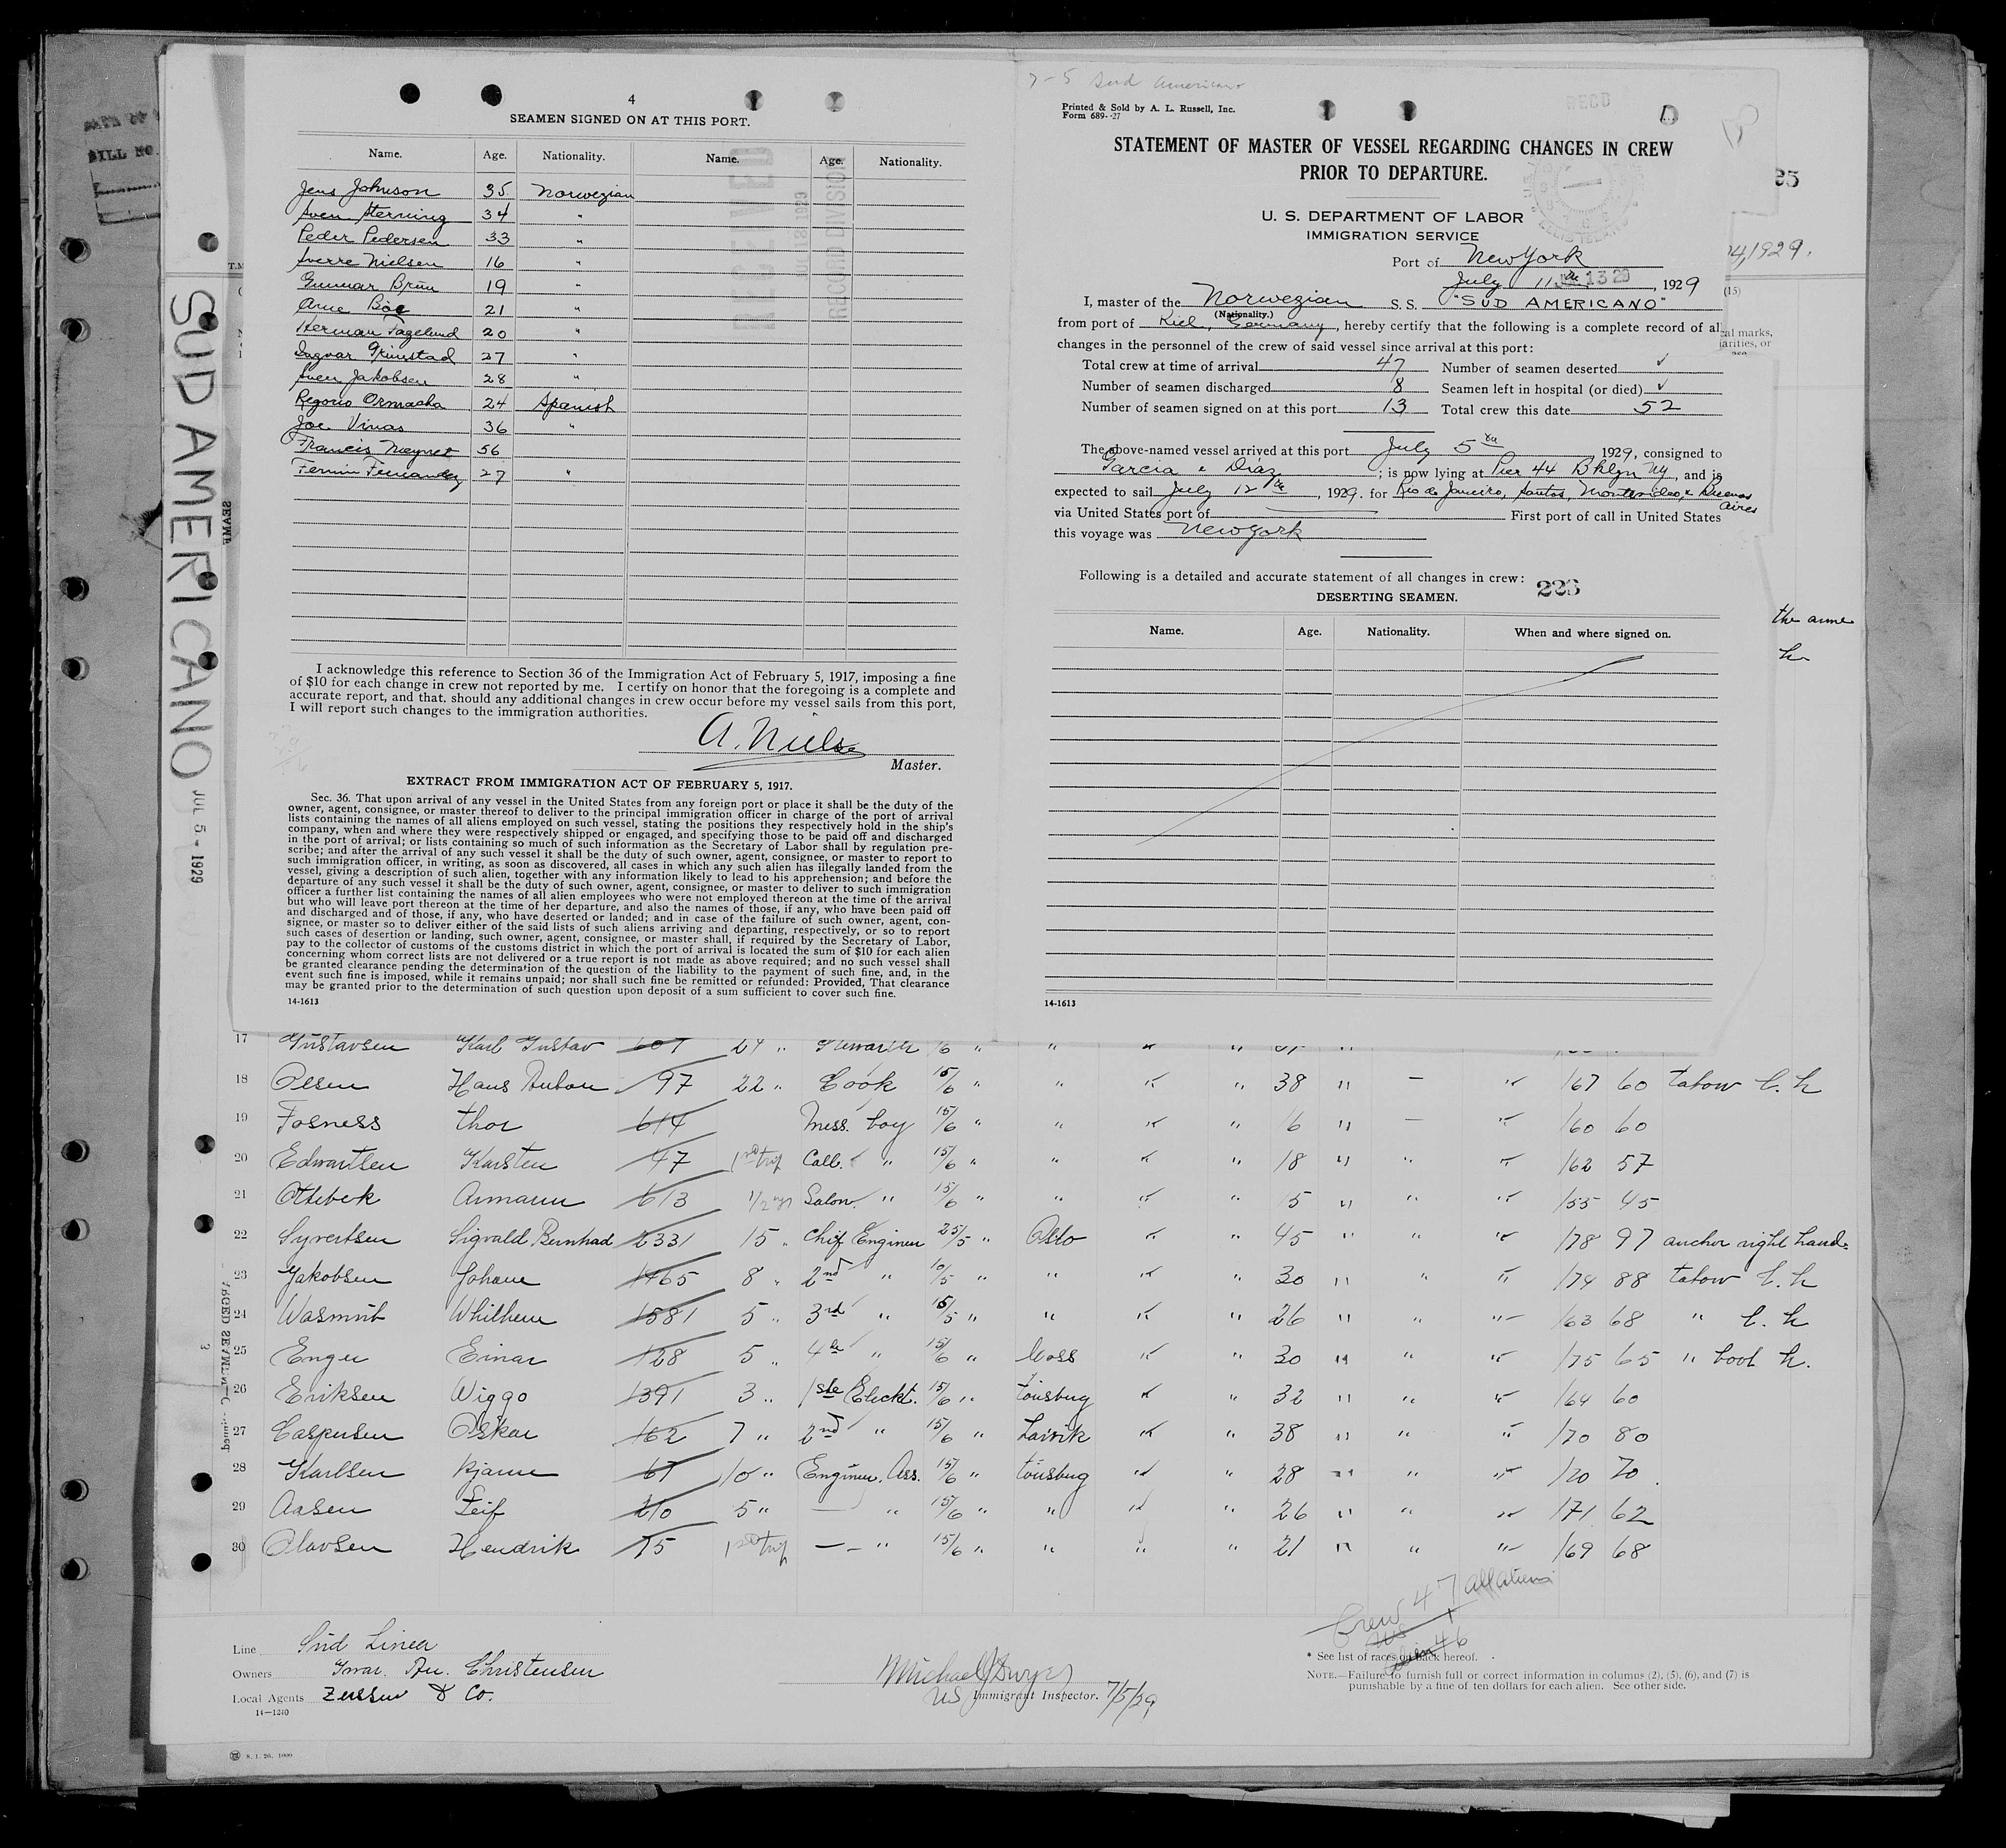 SUD AMERICANO JUL 5 - 1929
BILL NO.
4
SEAMEN SIGNED ON AT THIS PORT.
Name. Age. Nationality. Name. Age. Nationality.
Jens Johnson 35 Norwegian
Sven Herning 34 "
Peder Pedersen 33 "
Sverre Nielsen 16 "
Gunnar Brün 19 "
Arne Böe 21 "
Herman Fagelund 20 "
Ingvar Grimstad 27 "
Sven Jakobsen 28 "
Ormacha 24 Spanish
Joe Vinas 36 "
Francis 56
Fermin Fernandez 27 "
RECEIVED
RECORD DIVISION
I acknowledge this reference to Section 36 of the Immigration Act of February 5, 1917, imposing a fine
of $10 for each change in crew not reported by me. I certify on honor that the foregoing is a complete and
accurate report, and that. should any additional changes in crew occur before my vessel sails from this port,
I will report such changes to the immigration authorities.
A. Nielse
Master.
EXTRACT FROM IMMIGRATION ACT OF FEBRUARY 5, 1917.
Sec. 36. That upon arrival of any vessel in the United States from any foreign port or place it shall be the duty of the
owner, agent, consignee, or master thereof to deliver to the principal immigration officer in charge of the port of arrival
lists containing the names of all aliens employed on such vessel, stating the positions they respectively hold in the ship's
company, when and where they were respectively shipped or engaged, and specifying those to be paid off and discharged
in the port of arrival; or lists containing so much of such information as the Secretary of Labor shall by regulation pre-
scribe; and after the arrival of any such vessel it shall be the duty of such owner, agent, consignee, or master to report to
such immigration officer, in writing, as soon as discovered, all cases in which any such alien has illegally landed from the
vessel, giving a description of such alien, together with any information likely to lead to his apprehension; and before the
departure of any such vessel it shall be the duty of such owner, agent, consignee, or master to deliver to such immigration
officer a further list containing the names of all alien employees who were not employed thereon at the time of the arrival
but who will leave port thereon at the time of her departure, and also the names of those, if any, who have been paid off
and discharged and of those, if any, who have deserted or landed; and in case of the failure of such owner, agent, con-
signee, or master so to deliver either of the said lists of such aliens arriving and departing, respectively, or so to report
such cases of desertion or landing, such owner, agent, consignee, or master shall, if required by the Secretary of Labor,
pay to the collector of customs of the customs district in which the port of arrival is located the sum of $10 for each alien
concerning whom correct lists are not delivered or a true report is not made as above required; and no such vessel shall
be granted clearance pending the determination of the question of the liability to the payment of such fine, and, in the
event such fine is imposed, while it remains unpaid; nor shall such fine be remitted or refunded: Provided, That clearance
may be granted prior to the determination of such question upon deposit of a sum sufficient to cover such fine.
14-1613
7-5 Sud Americano
Printed & Sold by A. L. Russell, Inc.
Form 689--27
RECD
STATEMENT OF MASTER OF VESSEL REGARDING CHANGES IN CREW
PRIOR TO DEPARTURE.
U. S. DEPARTMENT OF LABOR
IMMIGRATION SERVICE
Port of New York
July 11th, 1929
I, master of the Norwegian S. S. "SUD AMERICANO"
(Nationality.)
from port of Kiel, Germany, hereby certify that the following is a complete record of al
changes in the personnel of the crew of said vessel since arrival at this port:
Total crew at time of arrival 47 Number of seamen deserted ✓
Number of seamen discharged 8 Seamen left in hospital (or died) ✓
Number of seamen signed on at this port 13 Total crew this date 52
The above-named vessel arrived at this port July 5th 1929, consigned to
Garcia & Diaz; is now lying at Pier 44 Bklyn Ny, and is
expected to sail July 12th, 1929. for Rio de Janeiro, Santos, Montevideo, & Buenos Aires
via United States port of First port of call in United States
this voyage was New York
Following is a detailed and accurate statement of all changes in crew: 223
DESERTING SEAMEN.
Name. Age. Nationality. When and where signed on.
14-1613
25
24, 1929.
(15)
17 Gustavsen Karl Gustav 607 24 "
18 Olsen Hans Anton 97 22 " Cook 15/6 " " " " 38 " — " 167 60 tatow l. h
19 Fosness Thor 614 Mess. boy 15/6 " " " " 6 " — " 160 60
20 Edwartsen Karsten 47 1st trip Call. " 15/6 " " " " 18 " " " 162 57
21 Ottebek Armann 613 1/2 yr Salon. " 15/6 " " " " 15 " " " 155 45
22 Syvertsen Sigvald Bernhad 2331 15 " Chif Enginer 25/5 " Oslo " " 45 " " " 178 97 ancher right hand.
23 Jakobsen Johane 1465 8 " 2nd " 10/5 " " " " 30 " " " 174 88 tatow l. h
24 Wasmut Whilhem 1581 5 " 3rd " 15/5 " " " " 26 " " " 163 68 " l. h
25 Enger Einar 128 5 " 4th " 15/6 " Moss " " 30 " " " 175 65 " boot h.
26 Eriksen Wiggo 1391 3 " 1ste Eleckt. 15/6 " Tönsbug " " 32 " " " 164 60
27 Caspersen Oskar 162 7 " 2nd " 15/6 " Larvik " " 38 " " " 170 80
28 Karlsen Bjarne 67 10 " Enginer. Ass. 15/6 " Tönsbug " " 28 " " " 170 70
29 Aasen Leif 210 5 " — " 15/6 " " " " 26 " " " 171 62
30 Olavsen Hendrik 75 1st trip — " 15/6 " " " " 21 " " " 169 68
Crew 47 all aliens
Line Sud Linea
Owners Ivar. An. Christensen
Local Agents
14-1240
Michael J Dwyer
US Immigrant Inspector. 7/5/29
* See list of races on back hereof.
NOTE.—Failure to furnish full or correct information in columns (2), (5), (6), and (7) is
punishable by a fine of ten dollars for each alien. See other side.